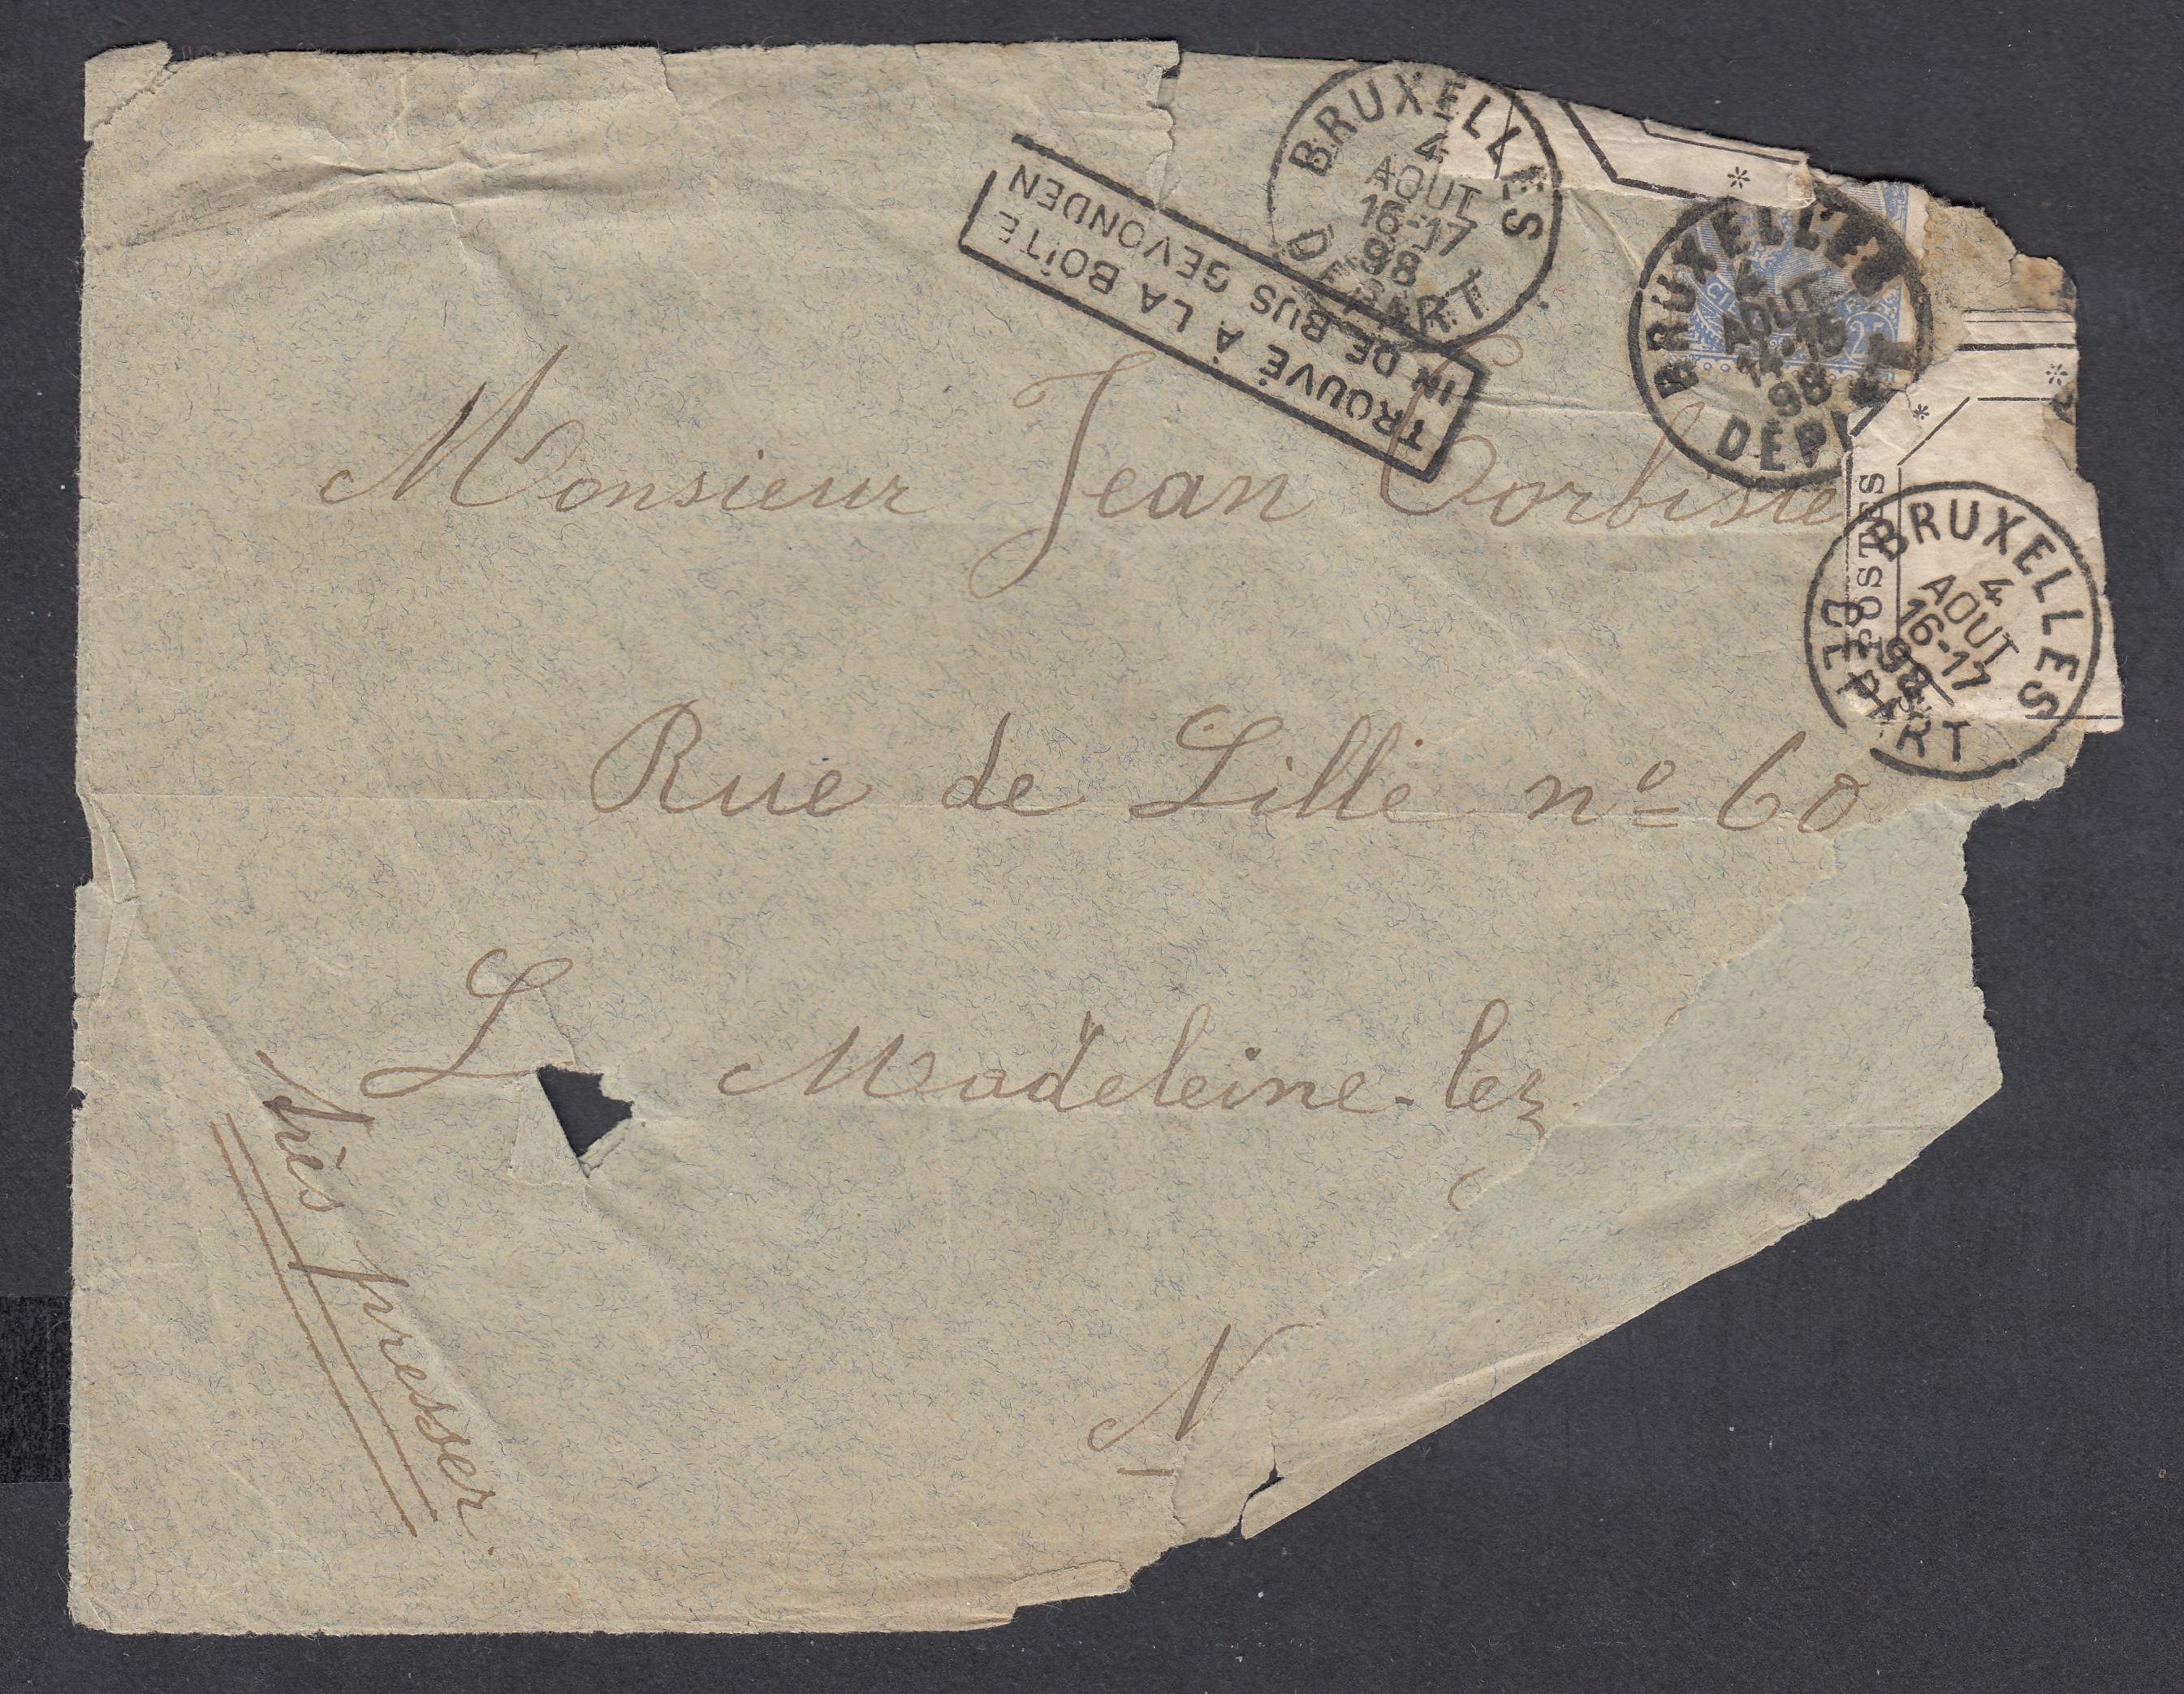 BRUXELLES
4
AOUT
16-17
98
DEPART
TROUVÉ À LA BOÎTE
IN DE BUS GEVONDEN
BRUXELLES
4
AOUT
14-15
98
25
POSTES
BRUXELLES
4
AOUT
16-17
98
DEPART
Monsieur Jean Corbisie
Rue de Lille nº 60
L Madeleine-lez
N
très presser